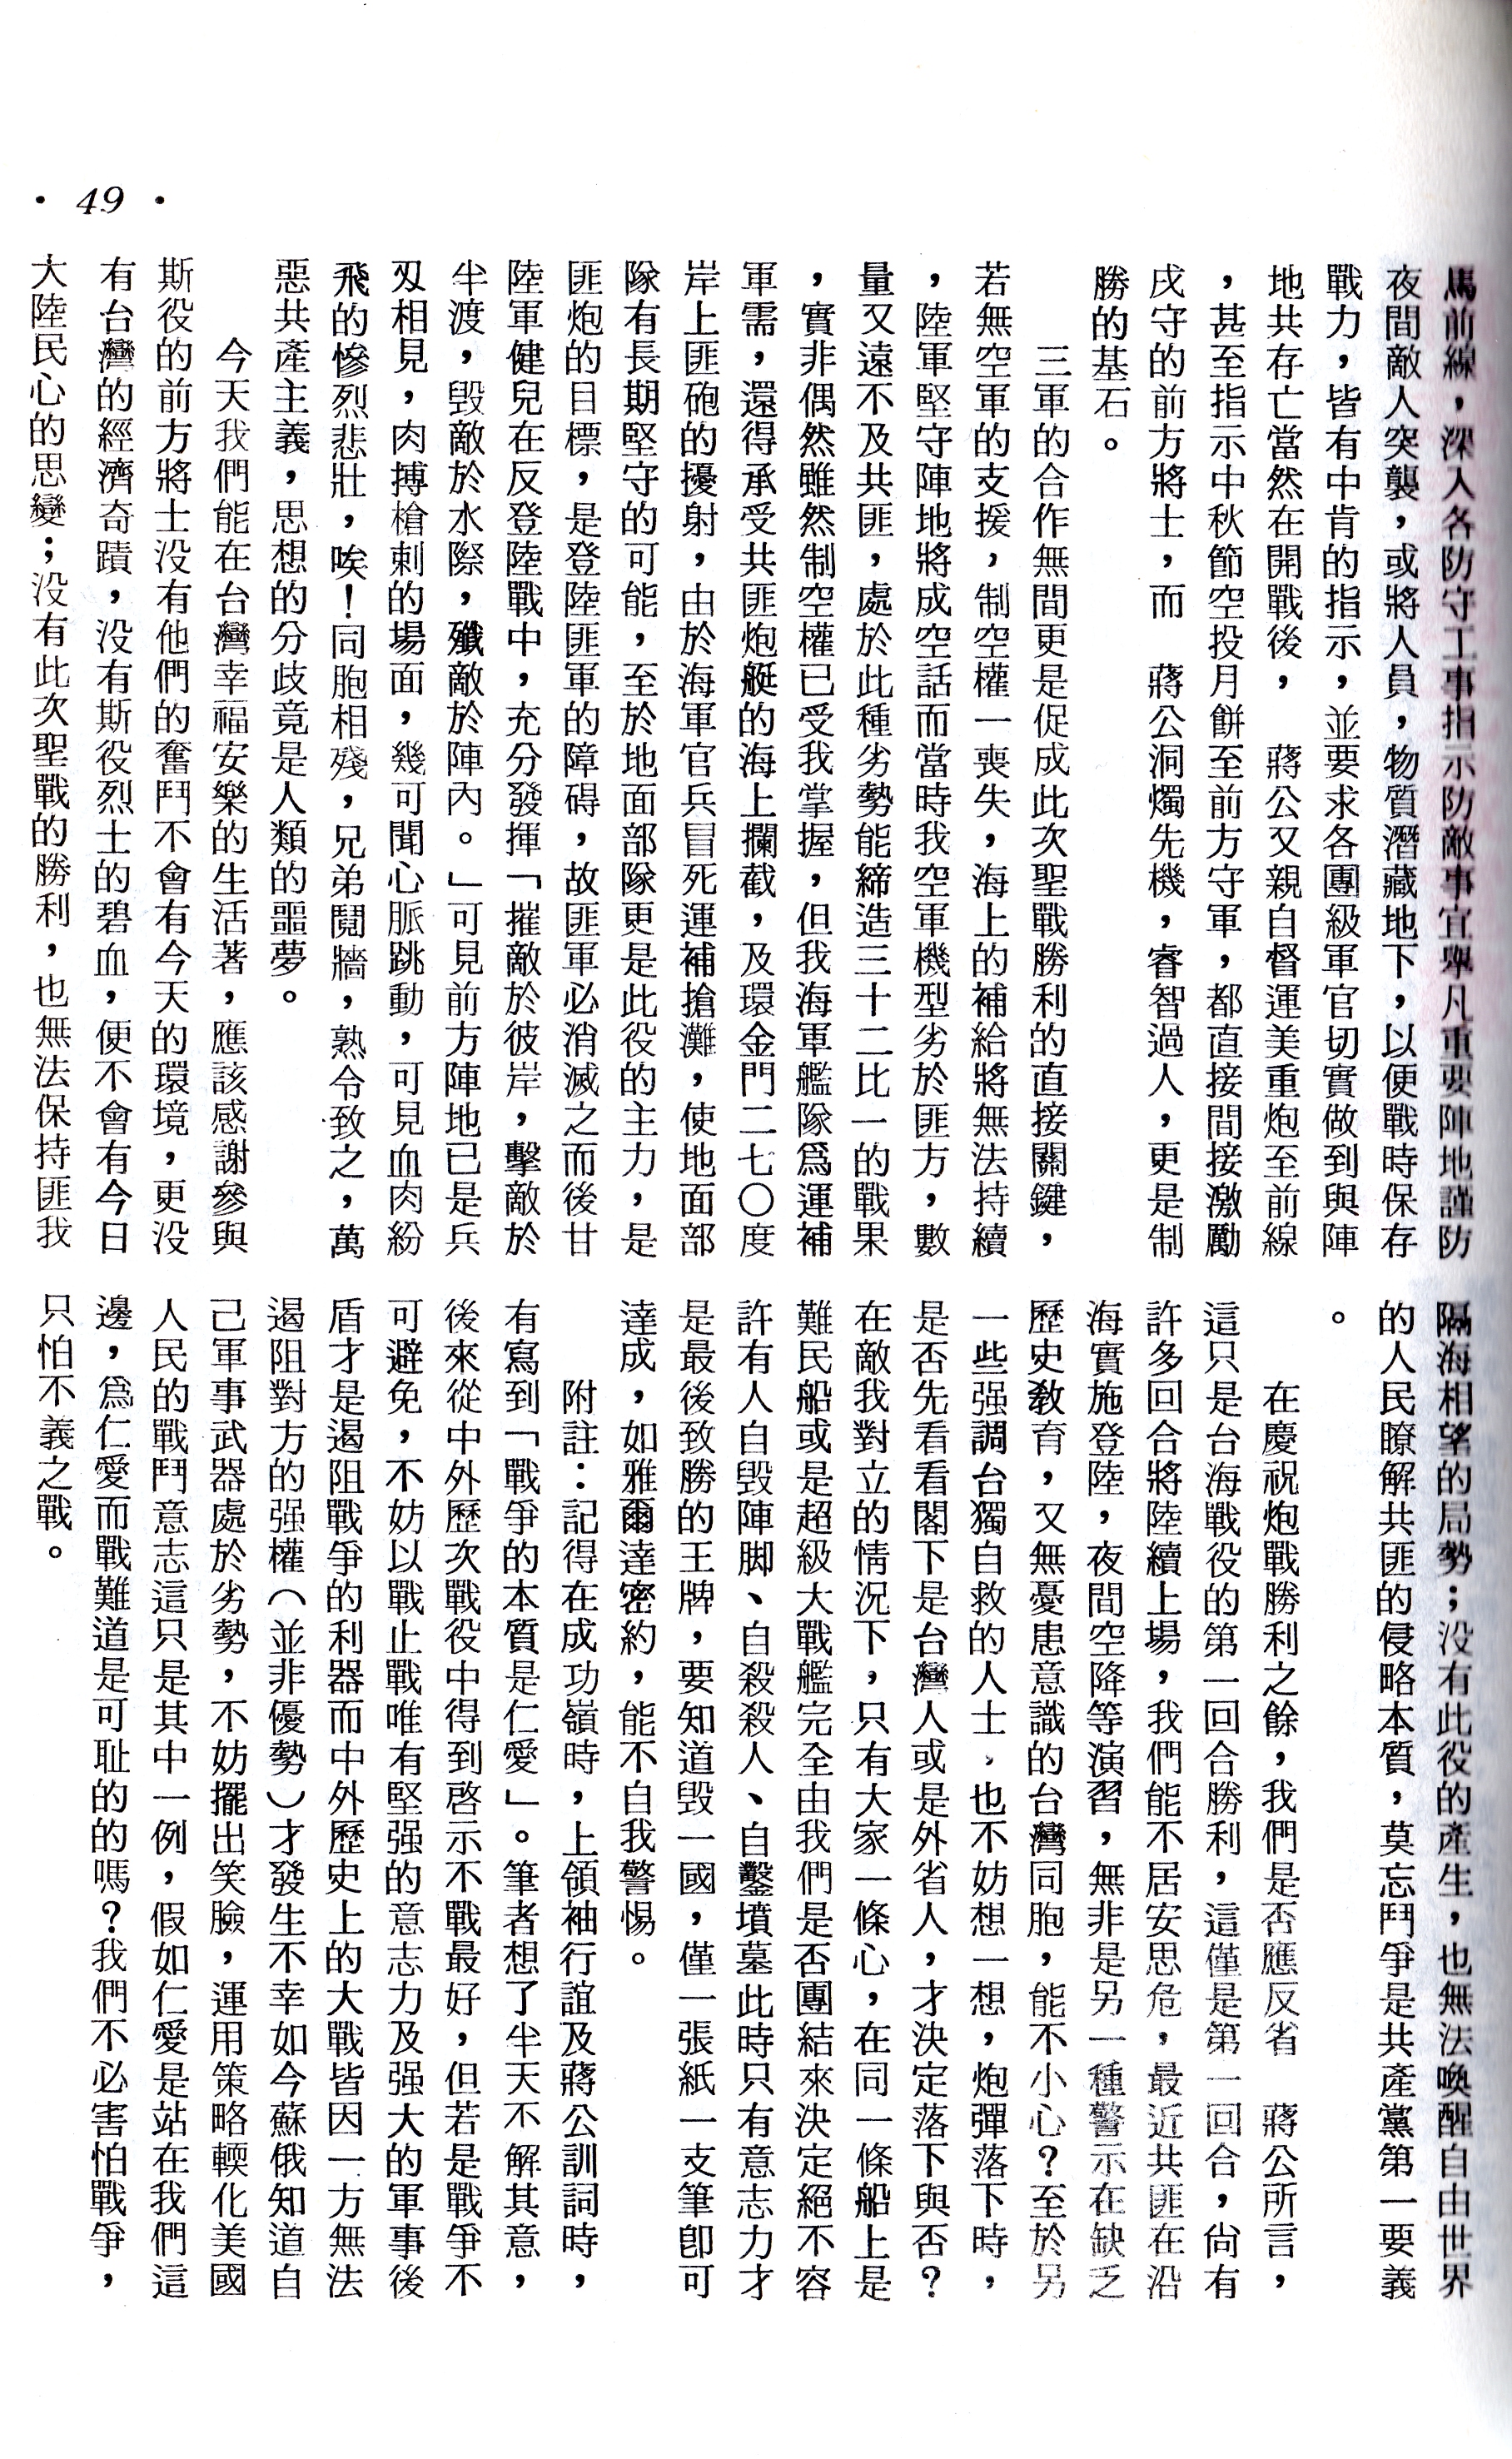 馬前線，深入各防守工事指示防敵事宜舉凡重要陣地謹防
夜間敵人突襲，或將人員，物質潛藏地下，以便戰時保存
戰力，皆有中肯的指示，並要求各團級軍官切實做到與陣
地共存亡當然在開戰後，　蔣公又親自督運美重炮至前線
，甚至指示中秋節空投月餅至前方守軍，都直接間接激勵
戍守的前方將士，而　蔣公洞燭先機，睿智過人，更是制
勝的基石。
　　三軍的合作無間更是促成此次聖戰勝利的直接關鍵，
若無空軍的支援，制空權一喪失，海上的補給將無法持續
，陸軍堅守陣地將成空話而當時我空軍機型劣於匪方，數
量又遠不及共匪，處於此種劣勢能締造三十二比一的戰果
，實非偶然雖然制空權已受我掌握，但我海軍艦隊爲運補
軍需，還得承受共匪炮艇的海上攔截，及環金門二七〇度
岸上匪砲的擾射，由於海軍官兵冒死運補搶灘，使地面部
隊有長期堅守的可能，至於地面部隊更是此役的主力，是
匪炮的目標，是登陸匪軍的障碍，故匪軍必消滅之而後甘
陸軍健兒在反登陸戰中，充分發揮「摧敵於彼岸，擊敵於
半渡，毀敵於水際，殲敵於陣內。」可見前方陣地已是兵
刄相見，肉搏槍刺的場面，幾可聞心脈跳動，可見血肉紛
飛的慘烈悲壯，唉！同胞相殘，兄弟鬩牆，熟令致之，萬
惡共產主義，思想的分歧竟是人類的噩夢。
　　今天我們能在台灣幸福安樂的生活著，應該感謝參與
斯役的前方將士没有他們的奮鬥不會有今天的環境，更没
有台灣的經濟奇蹟，没有斯役烈士的碧血，便不會有今日
大陸民心的思變；没有此次聖戰的勝利，也無法保持匪我
隔海相望的局勢；没有此役的產生，也無法喚醒自由世界
的人民瞭解共匪的侵略本質，莫忘鬥爭是共產黨第一要義
。
　　在慶祝炮戰勝利之餘，我們是否應反省　蔣公所言，
這只是台海戰役的第一回合勝利，這僅是第一回合，尚有
許多回合將陸續上場，我們能不居安思危，最近共匪在沿
海實施登陸，夜間空降等演習，無非是另一種警示在缺乏
歷史敎育，又無憂患意識的台灣同胞，能不小心？至於另
一些强調台獨自救的人士，也不妨想一想，炮彈落下時，
是否先看看閣下是台灣人或是外省人，才決定落下與否？
在敵我對立的情況下，只有大家一條心，在同一條船上是
難民船或是超級大戰艦完全由我們是否團結來決定絕不容
許有人自毀陣脚、自殺殺人、自鑿墳墓此時只有意志力才
是最後致勝的王牌，要知道毀一國，僅一張紙一支筆卽可
達成，如雅爾達密約，能不自我警惕。
　　附註：記得在成功嶺時，上領袖行誼及蔣公訓詞時，
有寫到「戰爭的本質是仁愛」。筆者想了半天不解其意，
後來從中外歷次戰役中得到啓示不戰最好，但若是戰爭不
可避免，不妨以戰止戰唯有堅强的意志力及强大的軍事後
盾才是遏阻戰爭的利器而中外歷史上的大戰皆因一方無法
遏阻對方的强權（並非優勢）才發生不幸如今蘇俄知道自
己軍事武器處於劣勢，不妨擺出笑臉，運用策略輭化美國
人民的戰鬥意志這只是其中一例，假如仁愛是站在我們這
邊，爲仁愛而戰難道是可恥的的嗎？我們不必害怕戰爭，
只怕不義之戰。
・49・